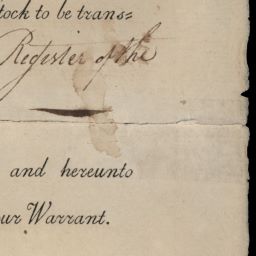 tock to be trans=
Register of the
and hereunto
our Warrant.